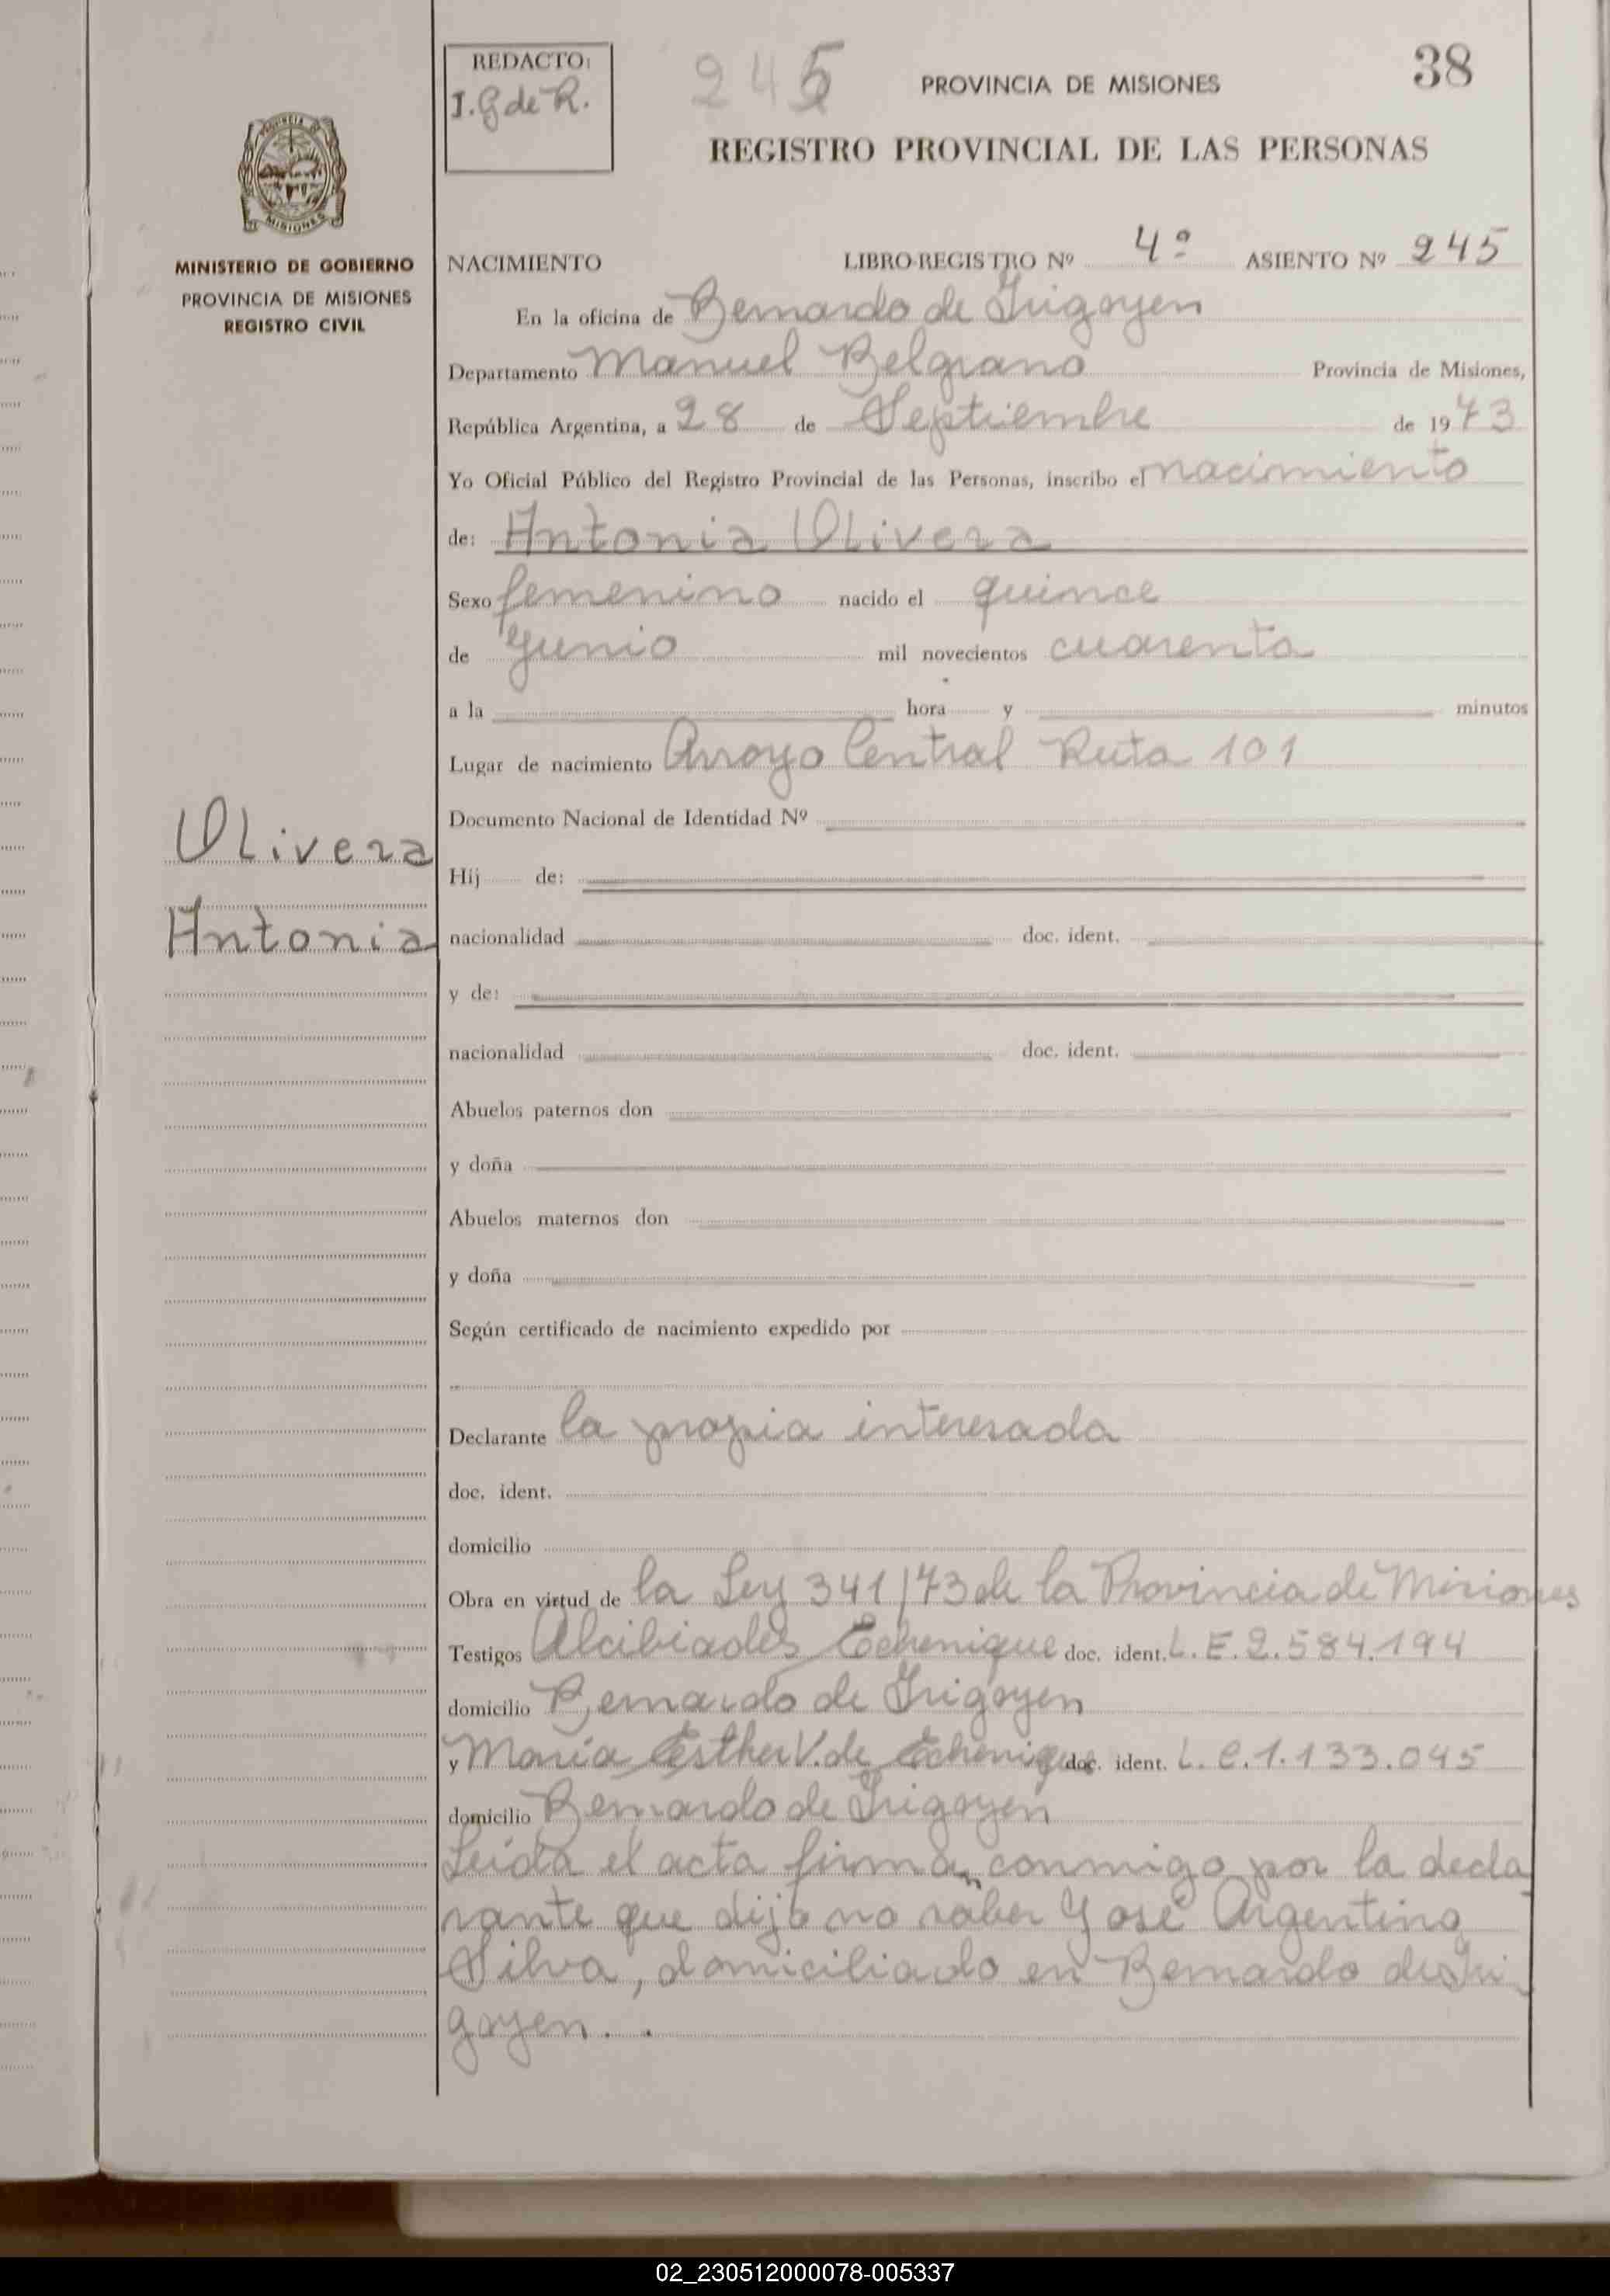 REDACTO:
I. G de R.
245
PROVINCIA DE MISIONES
38
REGISTRO PROVINCIAL DE LAS PERSONAS
MINISTERIO DE GOBIERNO
PROVINCIA DE MISIONES
REGISTRO CIVIL
NACIMIENTO LIBRO-REGISTRO Nº 4º ASIENTO Nº 245
En la oficina de Bernardo de Irigoyen
Departamento Manuel Belgrano Provincia de Misiones,
República Argentina, a 28 de Septiembre de 1973
Yo Oficial Público del Registro Provincial de las Personas, inscribo el nacimiento
de: Antonia Olivera
Sexo femenino nacido el quince
de Junio mil novecientos cuarenta
a la hora y minutos
Lugar de nacimiento Arroyo Central Ruta 101
Documento Nacional de Identidad Nº
Olivera
Antonia
Hij de:
nacionalidad doc. ident.
y de:
nacionalidad doc. ident.
Abuelos paternos don
y doña
Abuelos maternos don
y doña
Según certificado de nacimiento expedido por
Declarante la propia interesada
doc. ident.
domicilio
Obra en virtud de la Ley 341/73 de la Provincia de Misiones
Testigos Alcibiades Echenique doc. ident. L.E.2.584.194
domicilio Bernardo de Irigoyen
y María Esther V. de Echenique doc. ident. L.C.1.133.045
domicilio Bernardo de Irigoyen
Leída el acta firman conmigo por la decla
rante que dijo no saber José Argentino
Silva, domiciliado en Bernardo de Iri
goyen..
02_230512000078-005337